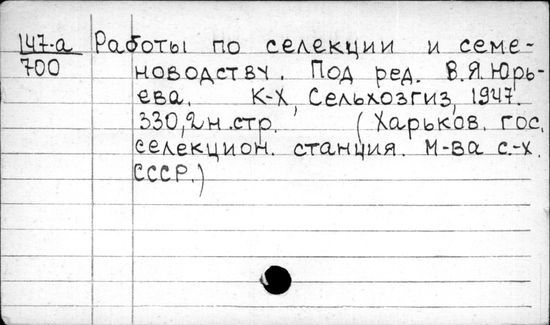 147-а Работы по селекции и семе-
700 новодству. Под ред. В.Я.Юрь-
ева. К-Х, Сельхозгиз, 1947.
330,2н.стр. (Харьков. гос.
селекцион. станция. М-ва с.-х.
СССР.)